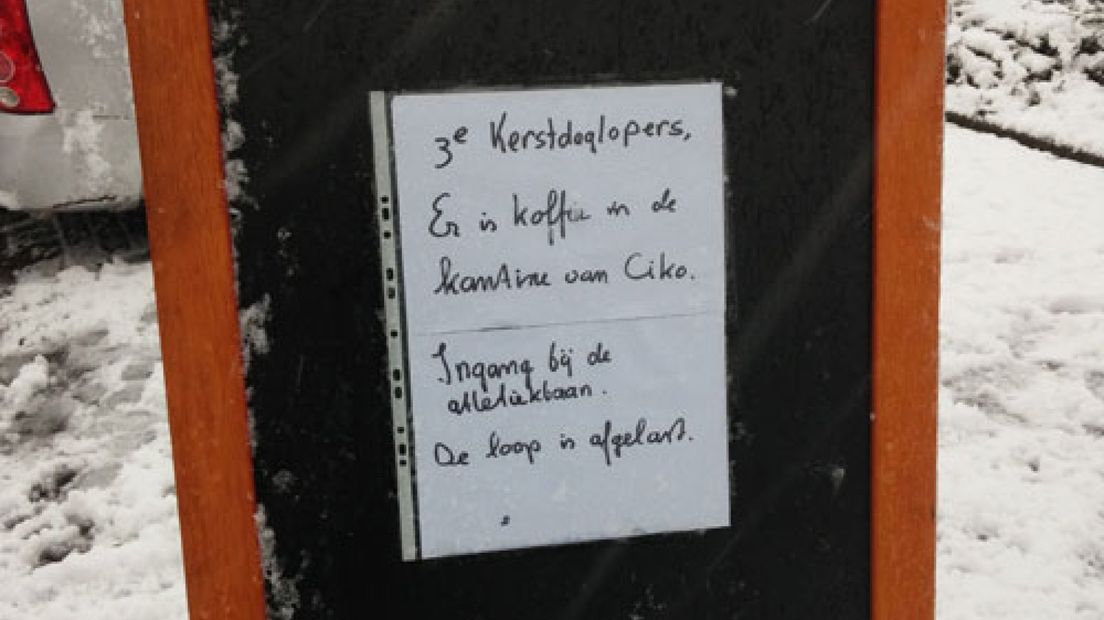 3e Kerstdaglopers,
Er is koffie in de
kantine van Ciko.
Ingang bij de
atletiekbaan.
De loop is afgelast.